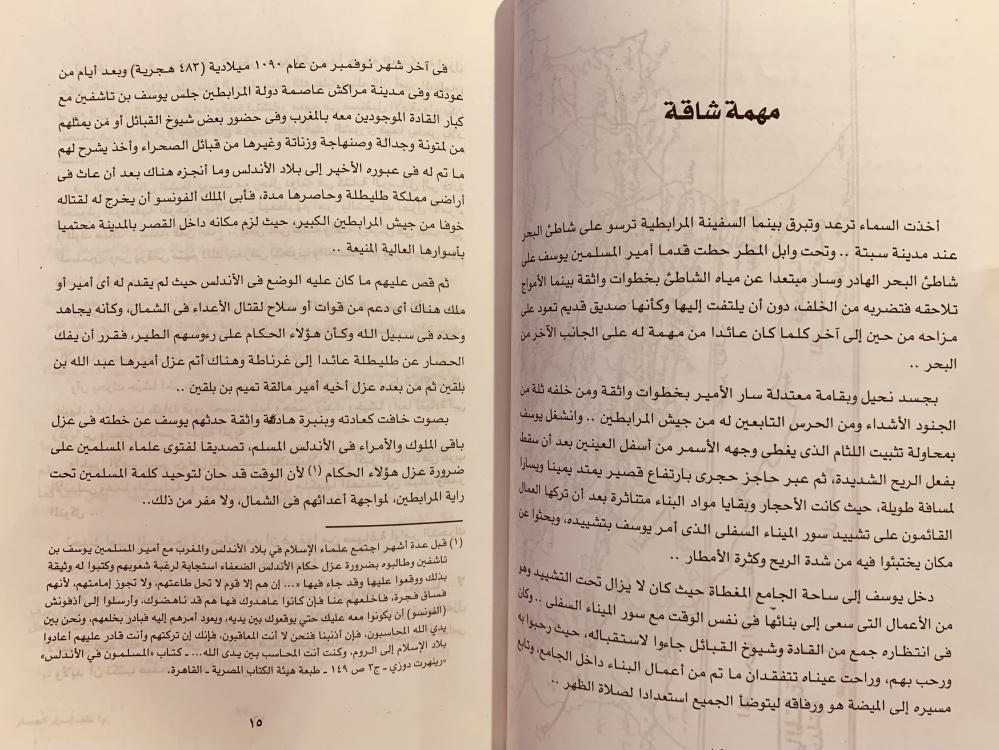 مهمة شاقة
أخذت السماء ترعد وتبرق بينما السفينة المرابطية ترسو على شاطئ البحر
عند مدينة سبتة .. وتحت وابل المطر حطت قدما أمير المسلمين يوسف على
شاطئ البحر الهادر وسار مبتعدا عن مياه الشاطئ بخطوات واثقة بينما الأمواج
تلاحقه فتضربه من الخلف، دون أن يلتفت إليها وكأنها صديق قديم تعود على
مزاحه من حين إلى آخر كلما كان عائدا من مهمة له على الجانب الآخر من
البحر ..
بجسد نحيل وبقامة معتدلة سار الأمير بخطوات واثقة ومن خلفه ثلة من
الجنود الأشداء ومن الحرس التابعين له من جيش المرابطين .. وانشغل يوسف
بمحاولة تثبيت اللثام الذى يغطى وجهه الأسمر من أسفل العينين بعد أن سقط
بفعل الريح الشديدة، ثم عبر حاجز حجرى بارتفاع قصير يمتد يمينا ويسارا
لمسافة طويلة، حيث كانت الأحجار وبقايا مواد البناء متناثرة بعد أن تركها العمال
القائمون على تشييد سور الميناء السفلى الذى أمر يوسف بتشييده، وبحثوا عن
مكان يختبئوا فيه من شدة الريح وكثرة الأمطار ..
دخل يوسف إلى ساحة الجامع المغطاة حيث كان لا يزال تحت التشييد وهو
من الأعمال التى سعى إلى بنائها فى نفس الوقت مع سور الميناء السفلى .. وكان
فى انتظاره جمع من القادة وشيوخ القبائل جاءوا لاستقباله، حيث رحبوا به
ورحب بهم، وراحت عيناه تتفقدان ما تم من أعمال البناء داخل الجامع، وتابع
مسيره إلى الميضة هو ورفاقه ليتوضأ الجميع استعدادا لصلاة الظهر ..
فى آخر شهر نوفمبر من عام ١٠٩٠ ميلادية (٤٨٣ هجرية) وبعد أيام من
عودته وفى مدينة مراكش عاصمة دولة المرابطين جلس يوسف بن تاشفين مع
كبار القادة الموجودين معه بالمغرب وفى حضور بعض شيوخ القبائل أو من يمثلهم
من لمتونة وجدالة وصنهاجة وزناتة وغيرها من قبائل الصحراء وأخذ يشرح لهم
ما تم له فى عبوره الأخير إلى بلاد الأندلس وما أنجزه هناك بعد أن عاث فى
أراضى مملكة طليطلة وحاصرها مدة، فأبى الملك ألفونسو أن يخرج له لقتاله
خوفا من جيش المرابطين الكبير، حيث لزم مكانه داخل القصر بالمدينة محتميا
بأسوارها العالية المنيعة ..
ثم قص عليهم ما كان عليه الوضع فى الأندلس حيث لم يقدم له أى أمير أو
ملك هناك أى دعم من قوات أو سلاح لقتال الأعداء فى الشمال، وكأنه يجاهد
وحده فى سبيل الله وكأن هؤلاء الحكام على رءوسهم الطير، فقرر أن يفك
الحصار عن طليطلة عائدا إلى غرناطة وهناك أتم عزل أميرها عبد الله بن
بلقين ثم من بعده عزل أخيه أمير مالقة تميم بن بلقين ..
بصوت خافت كعادته وبنبرة هادئة واثقة حدثهم يوسف عن خطته فى عزل
باقى الملوك والأمراء فى الأندلس المسلم، تصديقا لفتوى علماء المسلمين على
ضرورة عزل هؤلاء الحكام (١) لأن الوقت قد حان لتوحيد كلمة المسلمين تحت
راية المرابطين، لمواجهة أعدائهم فى الشمال، ولا مفر من ذلك..
(١) قبل عدة أشهر اجتمع علماء الإسلام في بلاد الأندلس والمغرب مع أمير المسلمين يوسف بن
تاشفين وطالبوه بضرورة عزل حكام الأندلس الضعفاء استجابة لرغبة شعوبهم وكتبوا له وثيقة
بذلك ووقعوا عليها وقد جاء فيها «... إن هم إلا قوم لا تحل طاعتهم، ولا تجوز إمامتهم، لأنهم
فساق فجرة، فاخلعهم عنا فإن كانوا عاهدوك فها هم قد ناهضوك، وأرسلوا إلى أذفونش
(ألفونسو) أن يكونوا معه عليك حتي يوقعوك بين يديه، ويعود أمرهم إليه فبادر بخلعهم، ونحن بين
يدي الله المحاسبون، فإن أذنبنا فنحن لا أنت المعاقبون، فإنك إن تركتهم وأنت قادر عليهم أعادوا
بلاد الإسلام إلى الروم، وكنت أنت المحاسب بين يدى الله... ـ كتاب «المسلمون في الأندلس»
«رينهرت دوزي ـ ج٣ ص ١٤٩ ـ طبعة هيئة الكتاب المصرية ـ القاهرة.
١٥